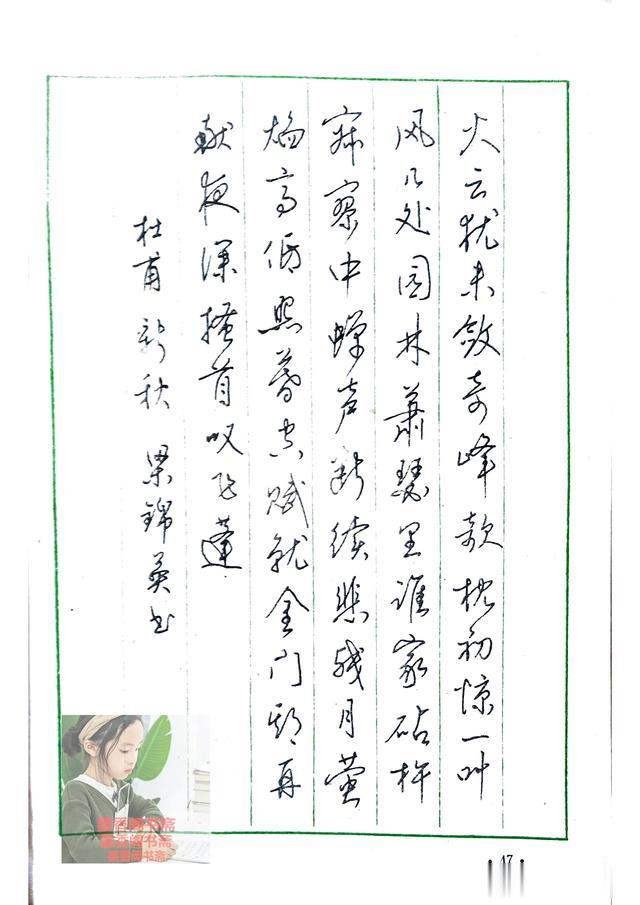 火云犹未敛奇峰欹枕初惊一叶
风几处园林萧瑟里谁家砧杵
寂寥中蝉声断续悲残月萤
焰高低照暮空赋就金门期再
献夜深搔首叹飞蓬
杜甫 新秋 梁锦英书